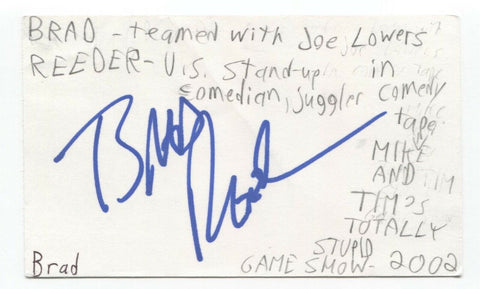 BRAD - teamed with Joe Lowers
REEDER - U.S. stand-up in
comedian, juggler comedy
tape,
MIKE
AND
TIM's
TOTALLY
STUPID
GAME SHOW - 2002
Brad Reeder
Brad